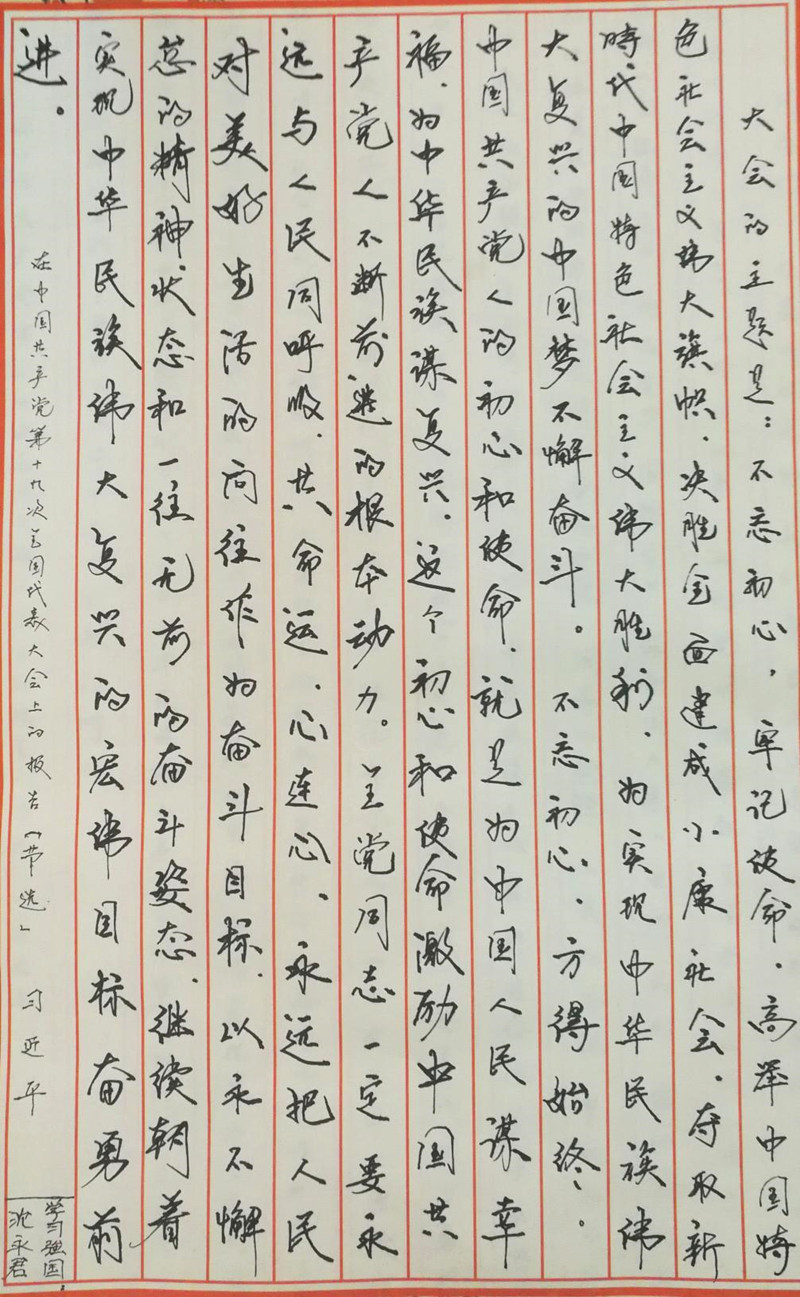 大会的主题是：不忘初心，牢记使命，高举中国特
色社会主义伟大旗帜，决胜全面建成小康社会，夺取新
時代中国特色社会主义伟大胜利，为实现中华民族伟
大复兴的中国梦不懈奋斗。不忘初心，方得始终。
中国共产党人的初心和使命，就是为中国人民谋幸
福，为中华民族谋复兴，这个初心和使命激励中国共
产党人不断前进的根本动力。全党同志一定要永
远与人民同呼吸、共命运、心连心、永远把人民
对美好生活的向往作为奋斗目标，以永不懈
怠的精神状态和一往无前的奋斗姿态，继续朝着
实现中华民族伟大复兴的宏伟目标奋勇前
进。
在中国共产党第十九次全国代表大会上的报告「节选」 习近平
学习强国
沈永君